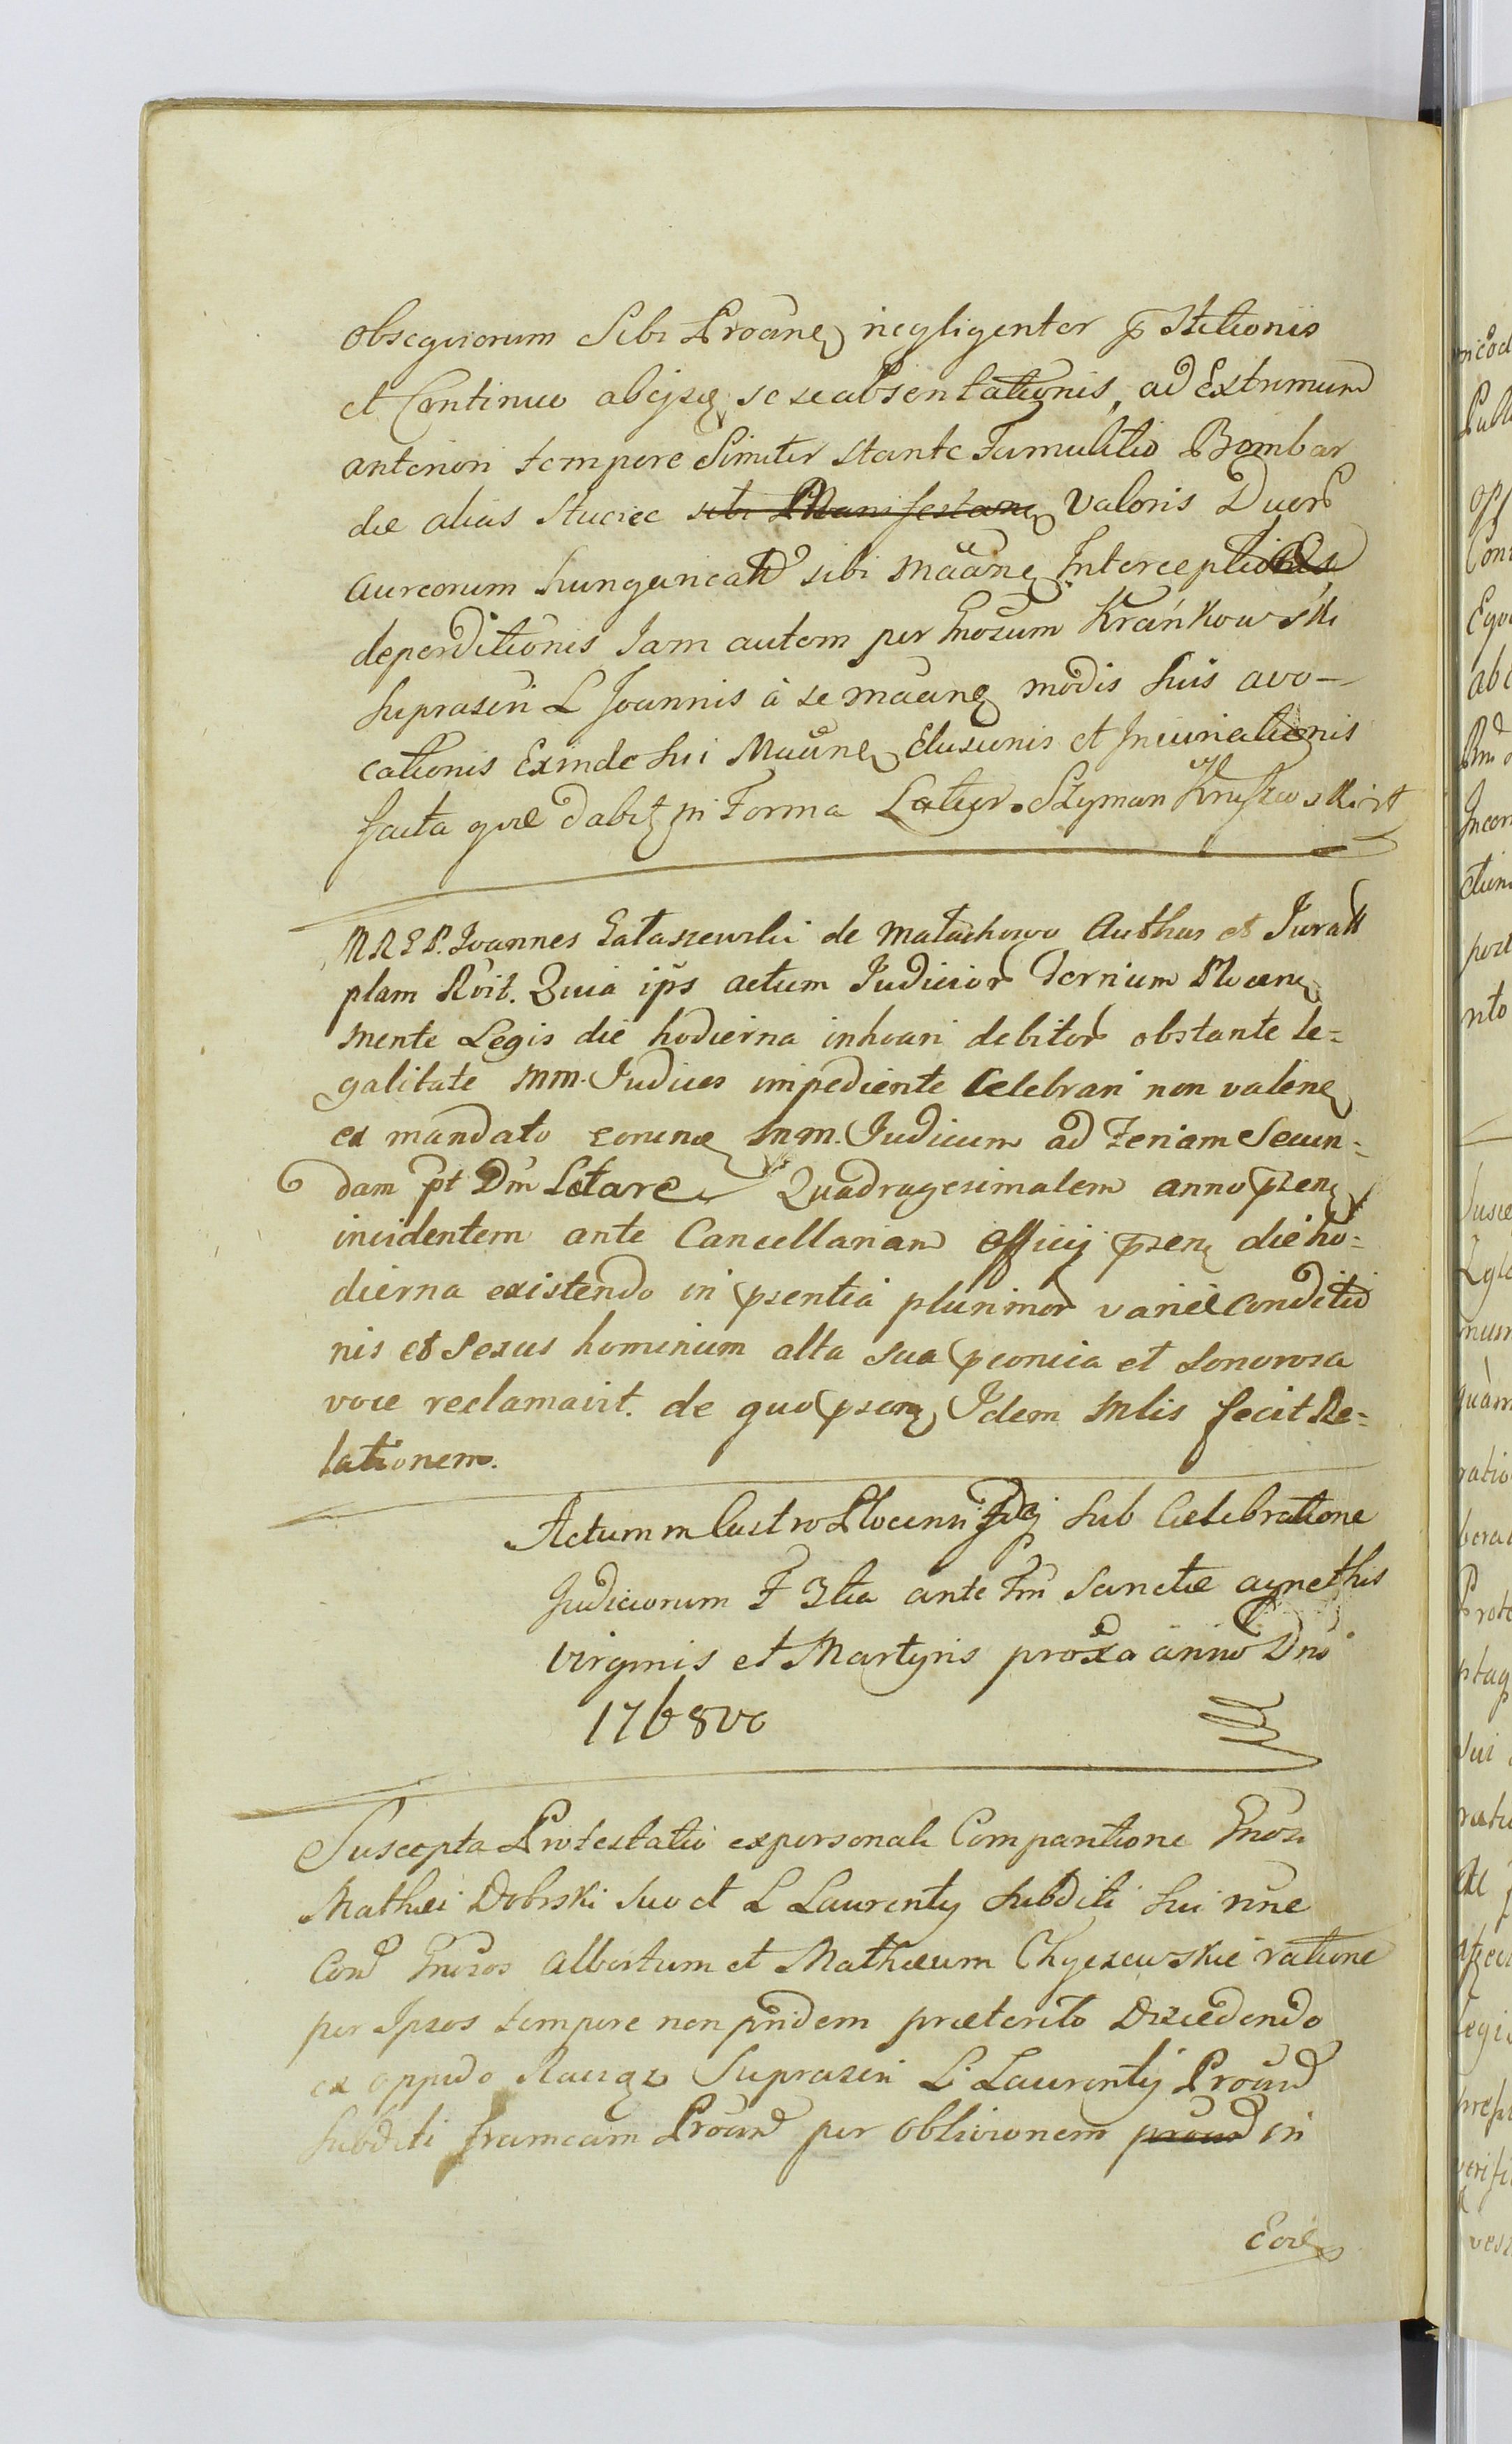 obsequiorum Sibi Proãnę negligenter p̱stitionis
et Continuo abejsę se seabsentationis, ad Extrimum
anteriori tempore Simiter stante Famulitio Bombar
dæ alias Stuciec sibi Manifestanę Valoris Duor
aureorum hungaricał sibi Mããnę Interceptionis
deperditionis Jam autem per Gnosum Krańkowski
suprascri L Joannis à se mãanę modis suis avo-
cationis Exinde sui Mããnę Elusionis et Iniuriationis
facta qræ dabitę in Forma Latior. Szyman Kruszewski rt
MREP. Joannes Gałaszewski de Małachowo Authus et Juratt
plam Roit. Quia ips actum Judicior Terrium Plocenę
mente Legis die hodierna inhoari debitor obstante le=
galitate Mm. Judices impediente Celebrari non valenę
ex mandato eorunę Mm. Judicum ad Feriam Secun=
dam pt Dm Letare Quadragesimalem anno p̱senę
incidentem ante Cancellarian Officij p̱senę die ho=
dierna existendo in p̱sentia plurimor variæ Conditio
nis et Sexus hominum alta sua p̱conica et Sonorosa
voce reclamavit. de quo p̱senę Idem Mlis fecit Re=
lationem.
Actum in Castro Plocensi Fdij Sub Celebratione
Judiciorum F 3tia ante Fm Sanctæ agnethis
Virginis et Martyris proxa anno Dni
1768vo
Suscepta Protestatio expersonali Comparitione Gnosi
Mathæi Dobrski suo et L Laurenty Subditi sui nne
Con Gnosos Albertum et Mathæum Chyczewskie ratione
per Ipsos tempore non pridem præterito Discedendo
ex oppido Raciąz Suprascri L. Laurentij Proãn
Subditi frameam Proãn per oblivionem proãn in
Eoræ